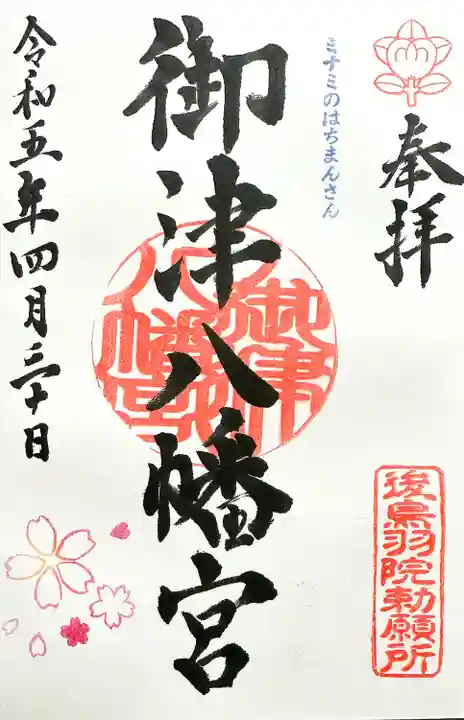 奉拝
ミナミのはちまんさん
御津八幡宮
御津八幡宮
令和五年四月三十日
後鳥羽院勅願所